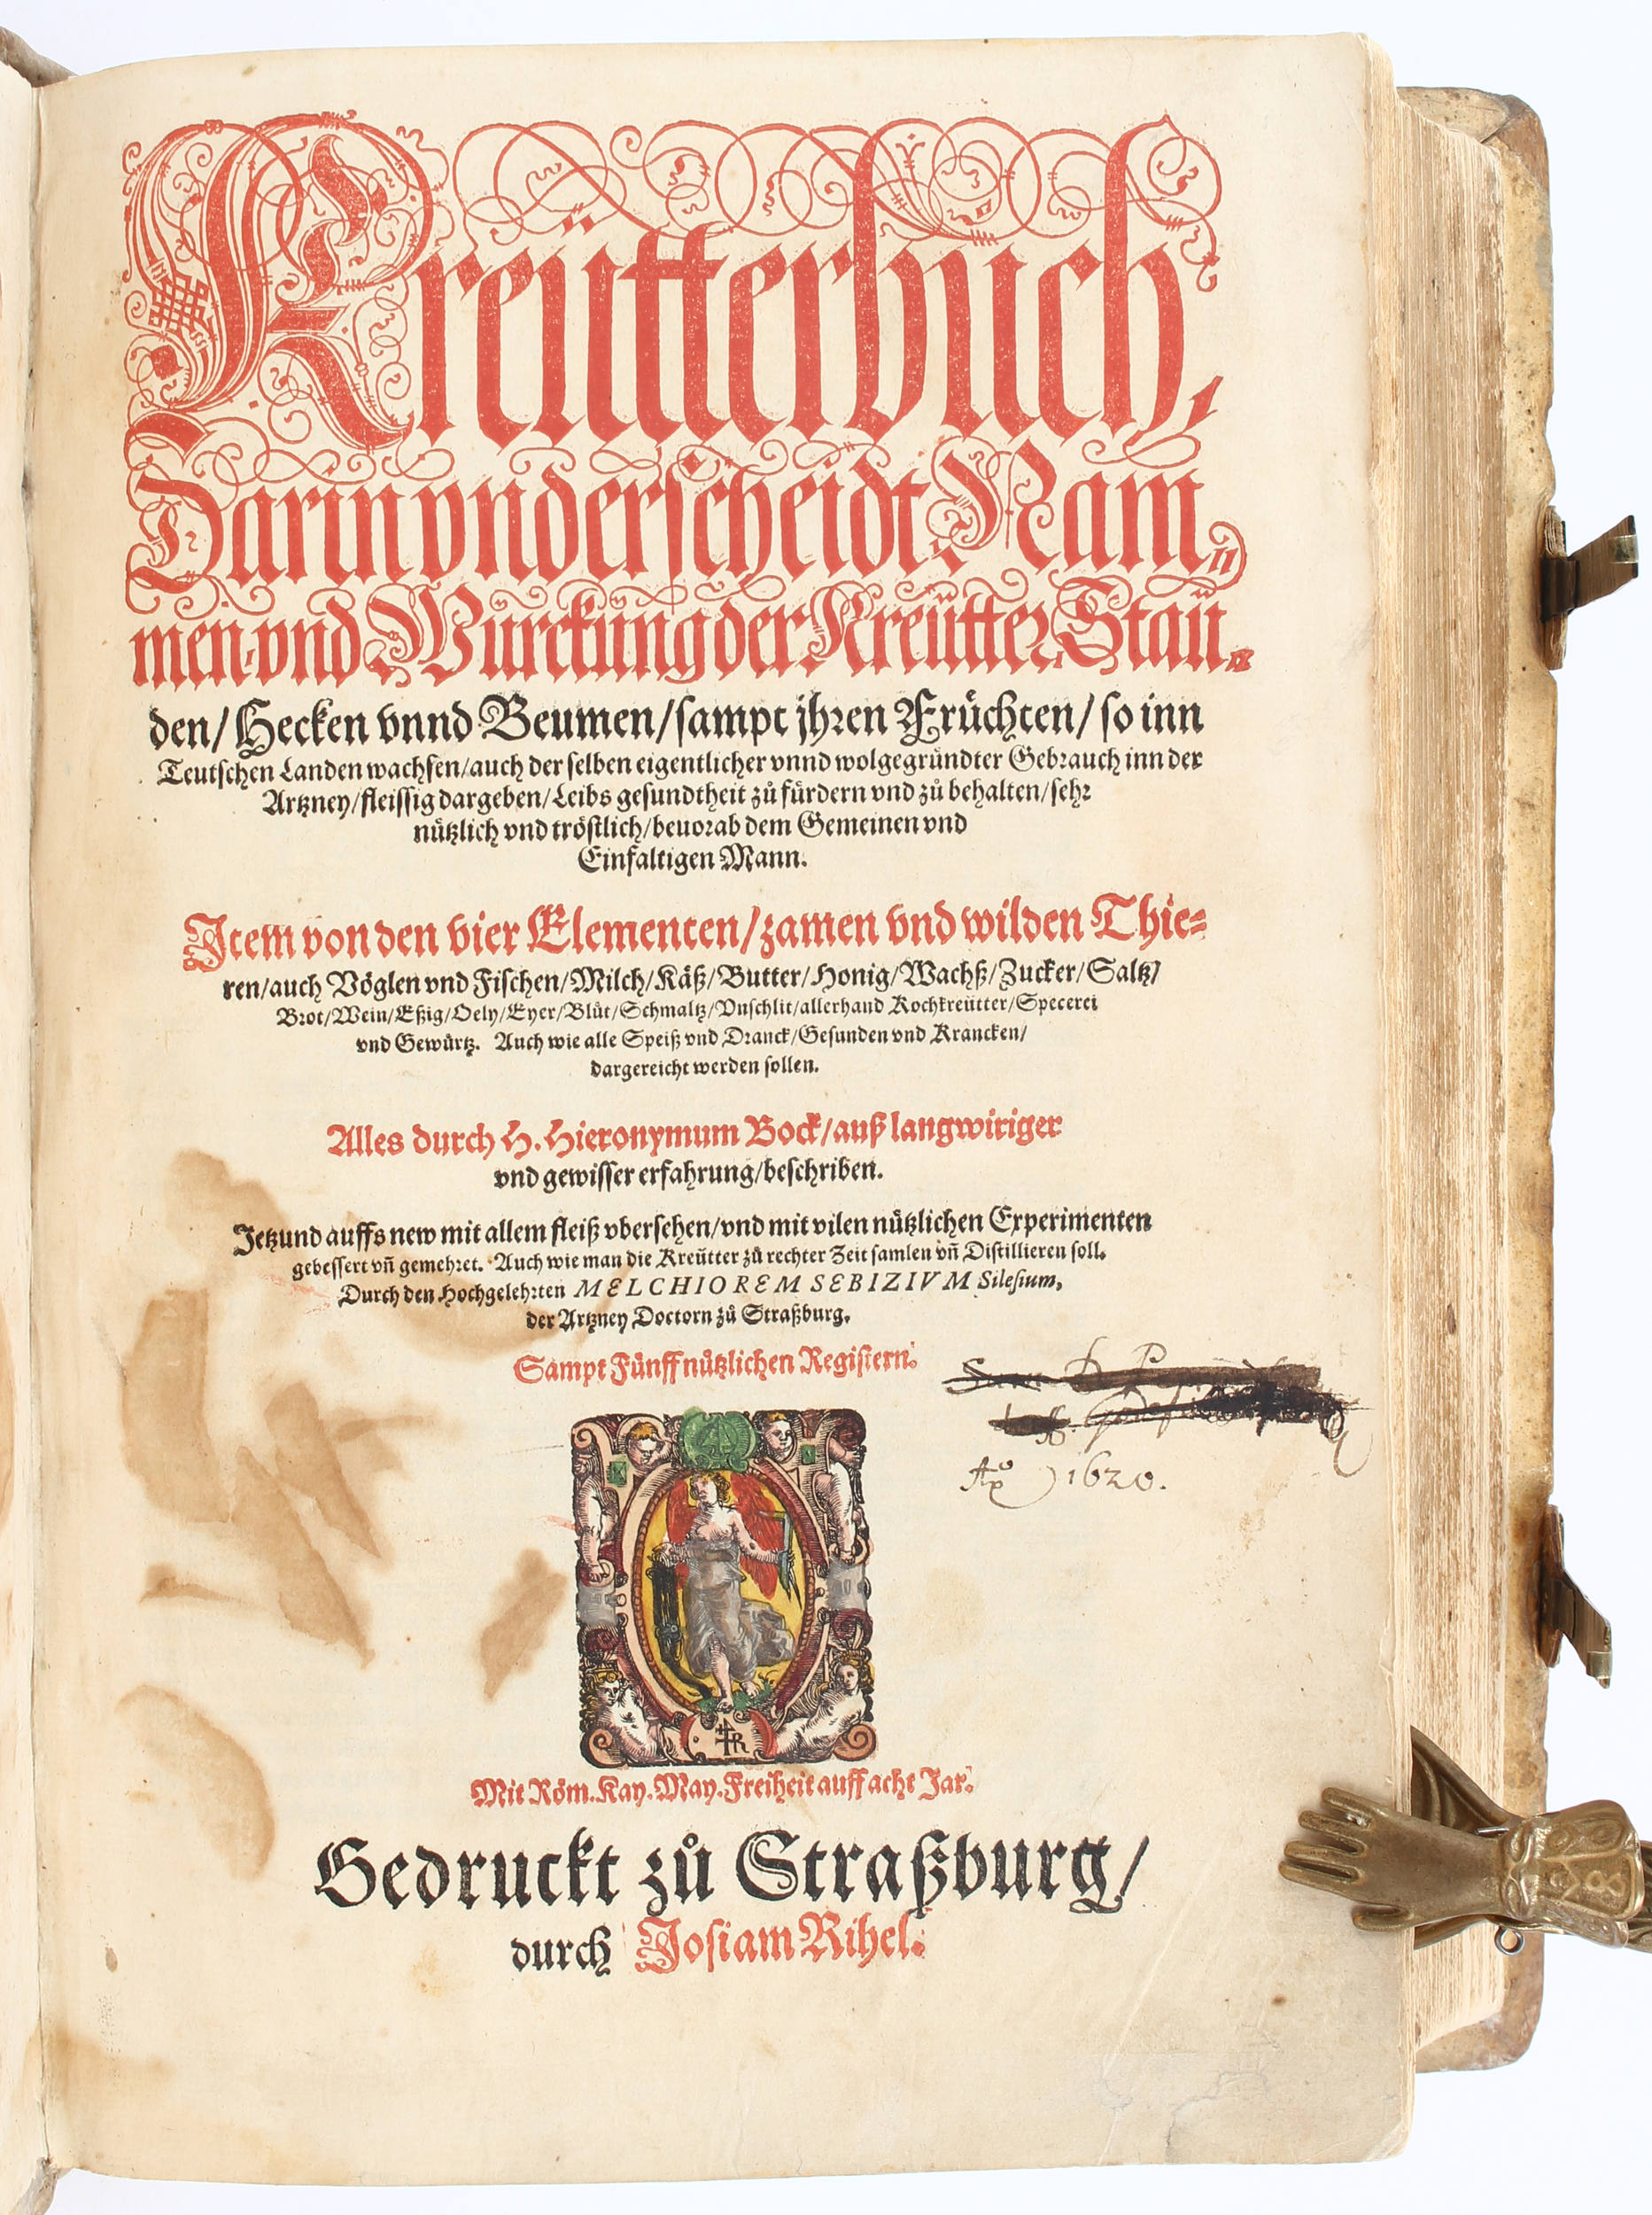 Kreütterbuch,
Darin vnderscheidt, Nam„
men vnd Würckung der Kreütter, Stau„
den/ Hecken vnnd Beumen/ sampt jhren Früchten/ so inn
Teutschen Landen wachsen/ auch der selben eigentlicher vnnd wolgegründter Gebrauch inn der
Artzney/ fleissig dargeben/ Leibs gesundtheit zů fürdern vnd zů behalten/ sehr
nützlich vnd tröstlich/ beuorab dem Gemeinen vnd
Einfaltigen Mann.
Item von den vier Elementen/ zamen vnd wilden Thie-
ren/ auch Vöglen vnd Fischen/ Milch/ Käß/ Butter/ Honig/ Wachß/ Zucker/ Saltz/
Brot/ Wein/ Eßig/ Oely/ Eyer/ Blůt/ Schmaltz/ Vnschlit/ allerhand Kochkreütter/ Specerei
vnd Gewürtz. Auch wie alle Speiß vnd Dranck/ Gesunden vnd Krancken/
dargereicht werden sollen.
Alles durch H. Hieronymum Bock/ auß langwiriger
vnd gewisser erfahrung/ beschriben.
Jetzund auffs new mit allem fleiß vbersehen/ vnd mit vilen nützlichen Experimenten
gebessert vñ gemehret. Auch wie man die Kreütter zů rechter Zeit samlen vñ Distillieren soll.
Durch den Hochgelehrten MELCHIOREM SEBIZIVM Silesium,
der Artzney Doctorn zů Straßburg.
Sampt Fünff nützlichen Registern.
Aº 1620.
R
Mit Röm. Kay. May. Freiheit auff acht Jar.
Gedruckt zů Straßburg/
durch Josiam Rihel.